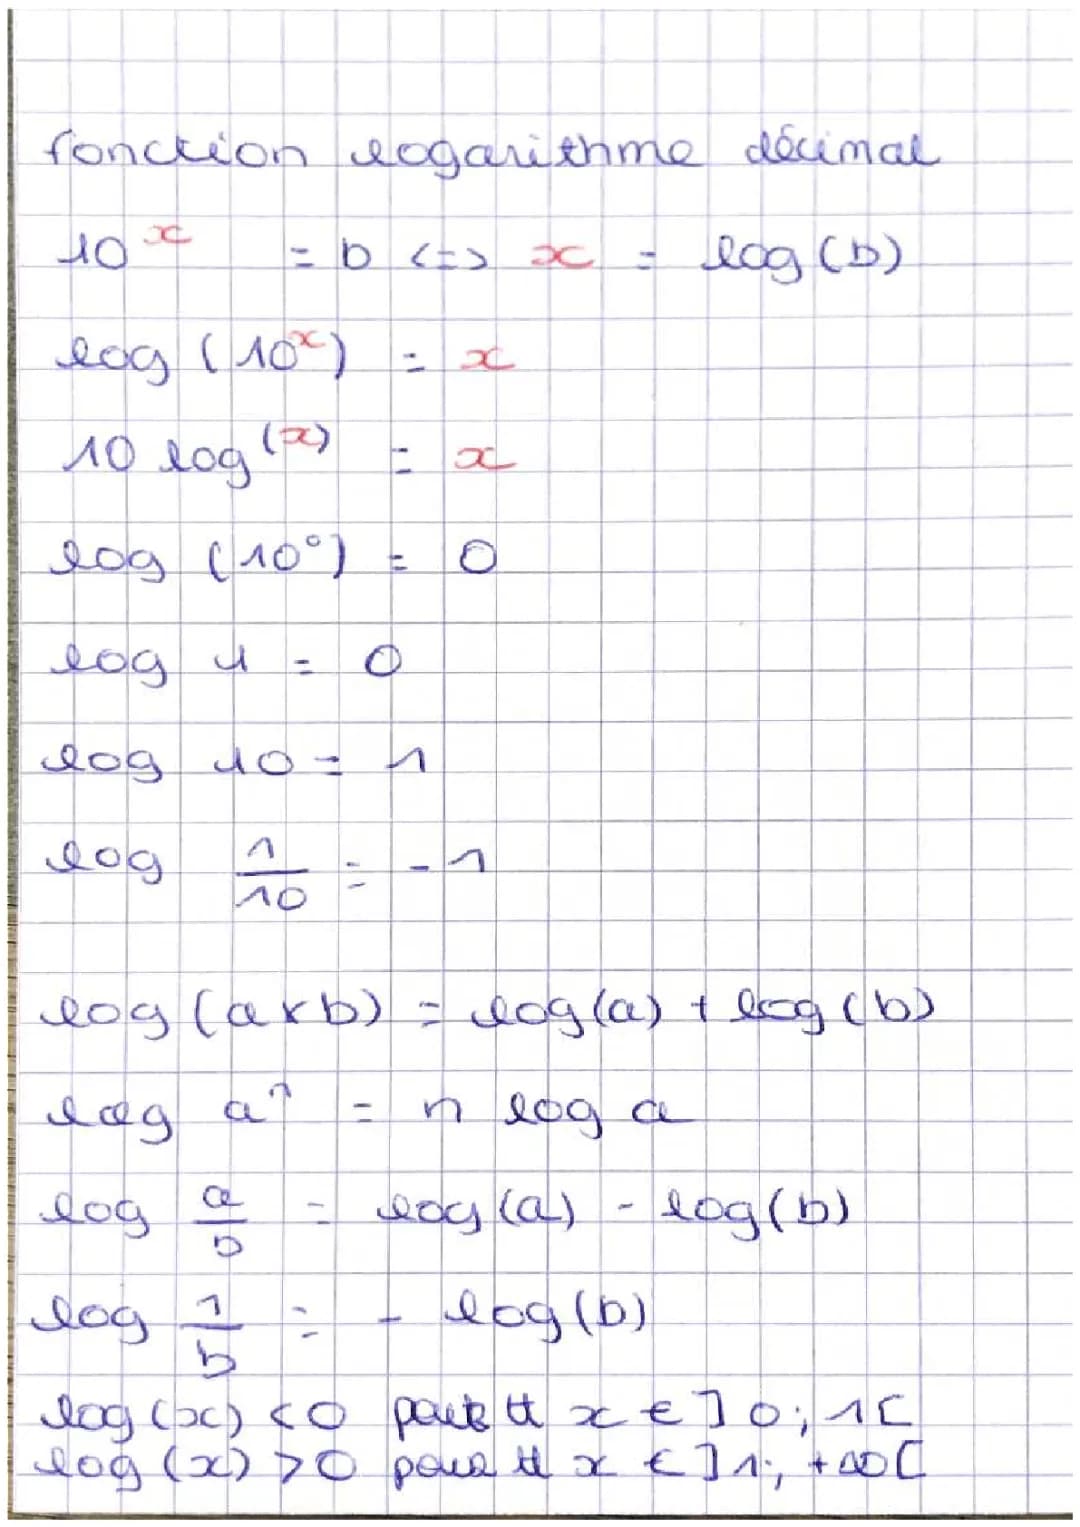 fonction logarithme décimal
10^x = b <=> x = log(b)
log (10^x) = x
10 log^(x) = x
log (10°) = 0
log 1 = 0
log 10 = 1
log 1/10 = -1
log (a×b) = log(a) + log(b)
log a^n = n log a
log a/b = log(a) - log(b)
log 1/b = - log(b)
log(x) <0 pour tt x ∈ ]0; 1[
log(x) >0 pour tt x ∈ ]1; +∞[